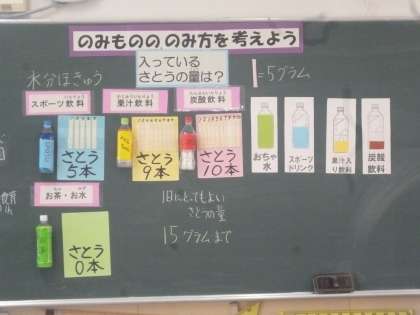 のみものの のみ方を考えよう
入っている
さとうの量は?
水分ほきゅう
=5グラム
スポーツ飲料
果汁飲料
炭酸飲料
さとう
5本
さとう
9本
さとう
10本
おちゃ
水
スポーツ
ドリンク
果汁入
り飲料
炭酸
飲料
お茶・お水
さとう
0本
1日にとってもよい
さとうの量
15グラムまで